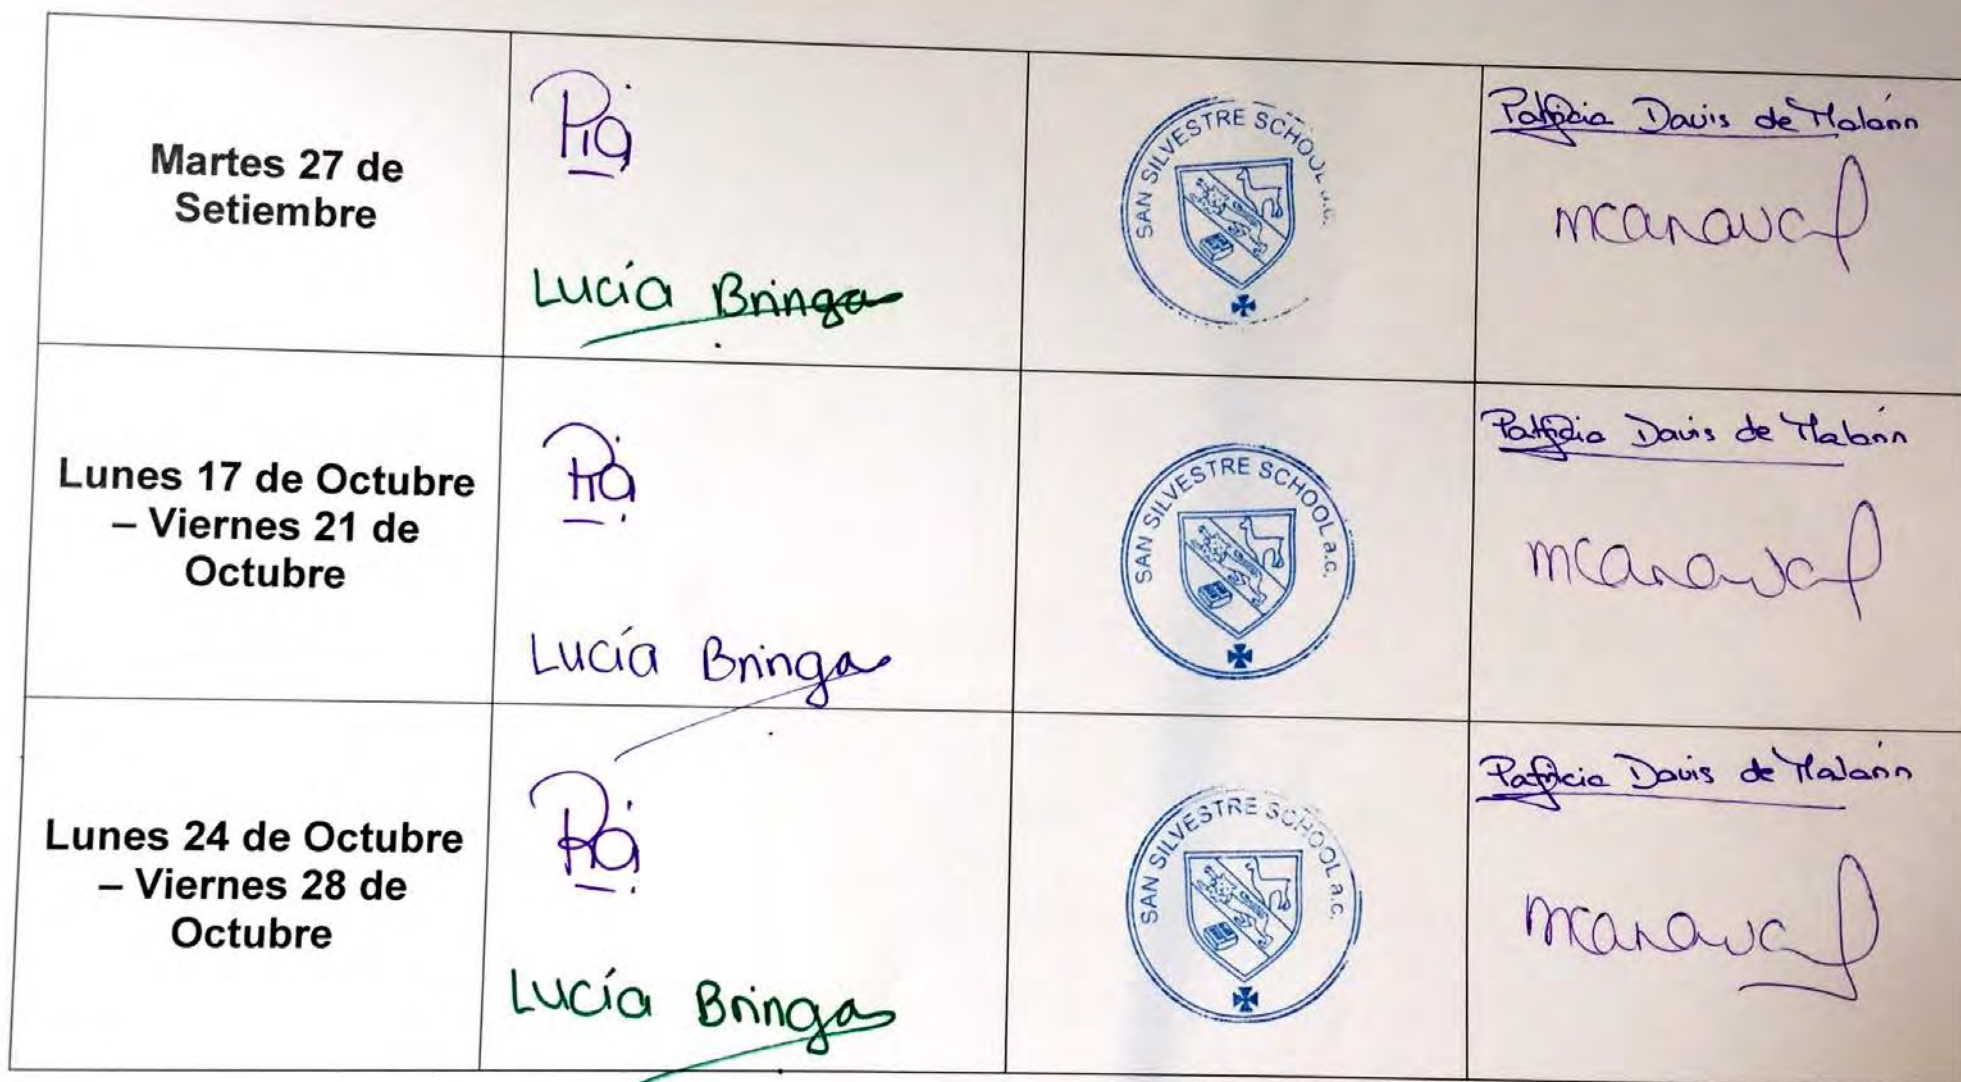 Martes 27 de
Setiembre
Pía
Lucía Bringas
SAN SILVESTRE SCHOOL a.c.
Patricia Davis de
mcanaval
Lunes 17 de Octubre
– Viernes 21 de
Octubre
Pía
Lucía Bringas
SAN SILVESTRE SCHOOL a.c.
Patricia Davis de
mcanaval
Lunes 24 de Octubre
– Viernes 28 de
Octubre
Pía
Lucía Bringas
SAN SILVESTRE SCHOOL a.c.
Patricia Davis de
mcanaval